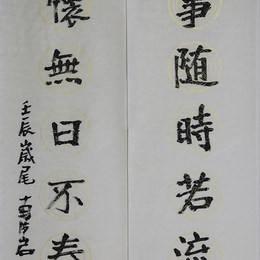 事随時若流
懷無日不春
壬辰歲尾